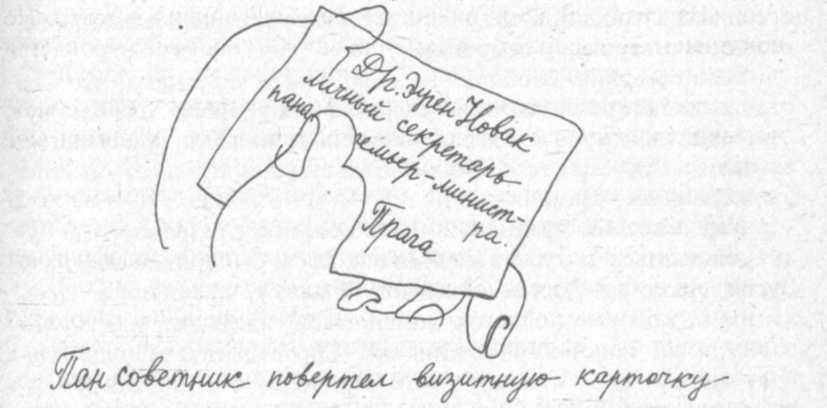 Др. Эжен Новак
личный секретарь
пана премьер-минист-
ра.
Прага
Пан советник повертел визитную карточку